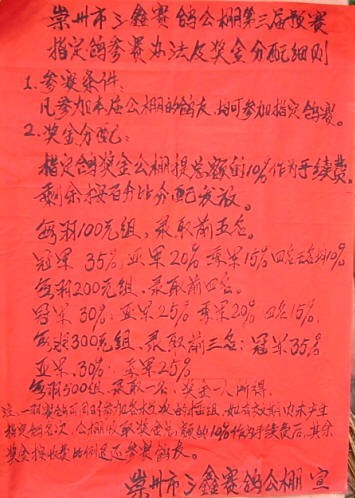 崇州市三鑫赛鸽公棚第三届预赛
指定鸽参赛办法及奖金分配细则
1.参赛条件:
凡参加本届公棚的鸽友,均可参加指定鸽赛。
2.奖金分配:
指定鸽奖金公棚提总额的10%作为手续费。
剩余按百分比分配发放。
每羽100元组,录取前五名。
冠军35%亚军20%季军15%四名五名
每羽200元组,录取前四名。
冠军30%亚军25%季军20%四名15%
每羽300元组,录取前三名:冠军35%
亚军30%季军25%
每羽500组,录取一名,奖金一人所得
注:一羽赛鸽可同时参加各奖项的插组,如有效期内未产生
指定鸽名次,公棚收取奖金总额的10%作为手续费后,其余
奖金按收费比例退还参赛鸽友。
崇州市三鑫赛鸽公棚宣